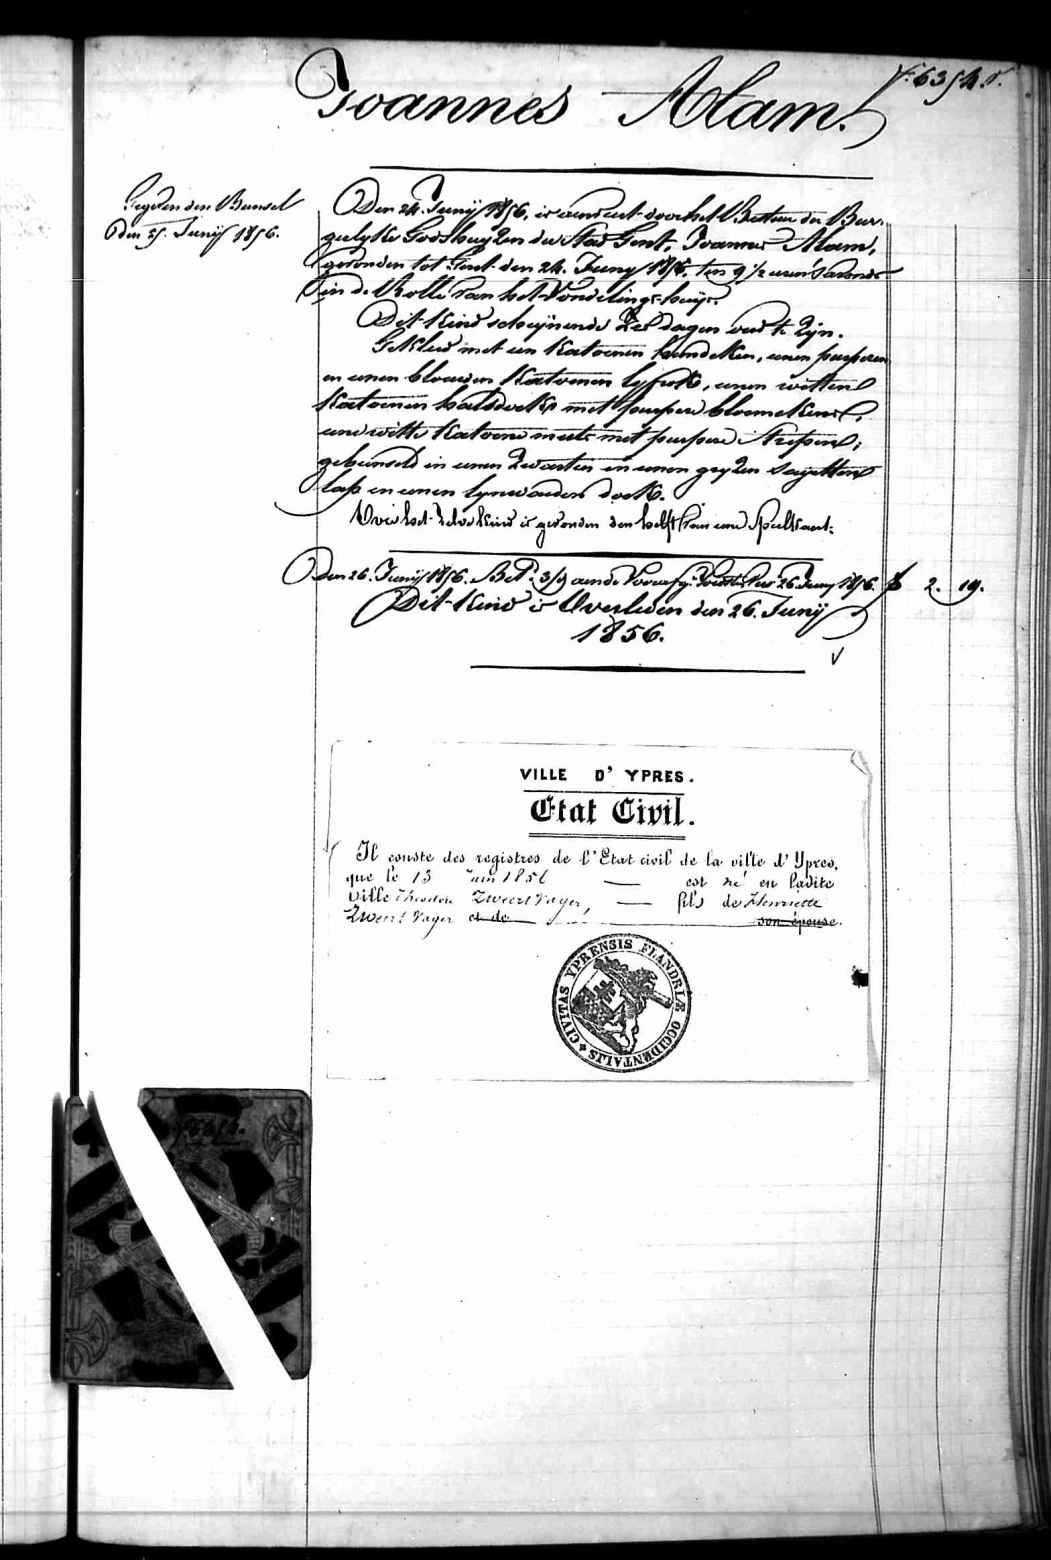 Joannes Alam.
Den 25. Junij 1856.
Den 24. Junij 1856, is aenveert door het Bestuer der Bur-
gelyke Godshuyzen der Stad Gent, Joannes Alam,
gevonden tot Gent den 24. Juny 1856, ten 9 1/2 uren 's avonds
in de Rolle van het Vondelings-huys.
Dit Kind schynende Zes dagen oud te Zyn.
Gekleed met een Katoenen hemdeken, eenen purperen
en eenen blouwen Katoenen lyfrok, eenen witten
Katoenen halsdoek met purpere bloemekens,
eene witte Katoene muts met purpere Strepen;
gebunseld in eenen Zwarten en eenen gryzen Sayetten
lap en eenen lynwaeden doek.
Over het Zelve Kind is gevonden den helft van eene Speelkaert.
Den 26. Junij 1856. 26 Juny 1856. 2. 19.
Dit Kind is Overleden den 26. Junij
1856.
VILLE D' YPRES.
Etat Civil.
Il conste des registres de l'Etat civil de la ville d'Ypres,
que le 13 Juin 1856 — est né en ladite
ville Theodore Zweertvager, — fils de Henriette
Zweertvager et de son épouse.
CIVITAS YPRENSIS FLANDRIÆ OCCIDENTALIS